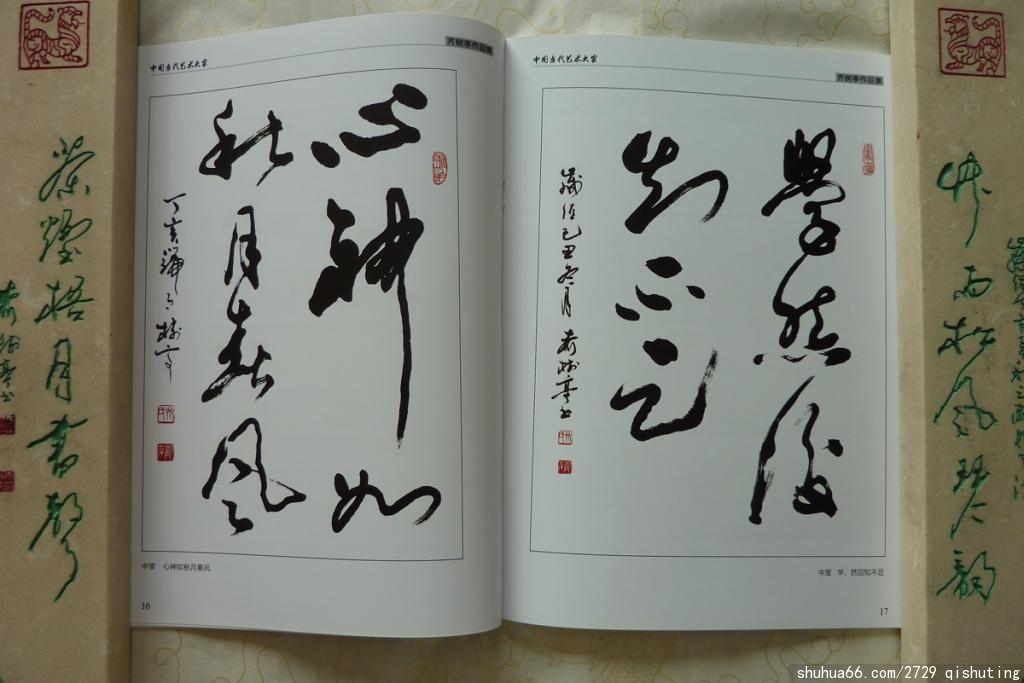 中国当代艺术大家
齐树亭作品集
心神如
秋月春风
丁亥端月树亭
中堂 心神如秋月春风
16
中国当代艺术大家
齐树亭作品集
學然後
知不足
歲值己丑冬月齐树亭書
中堂 学，然后知不足
17
竹雨松风琴韵
茶烟梧月書聲
shuhua66.com/2729 qishuting